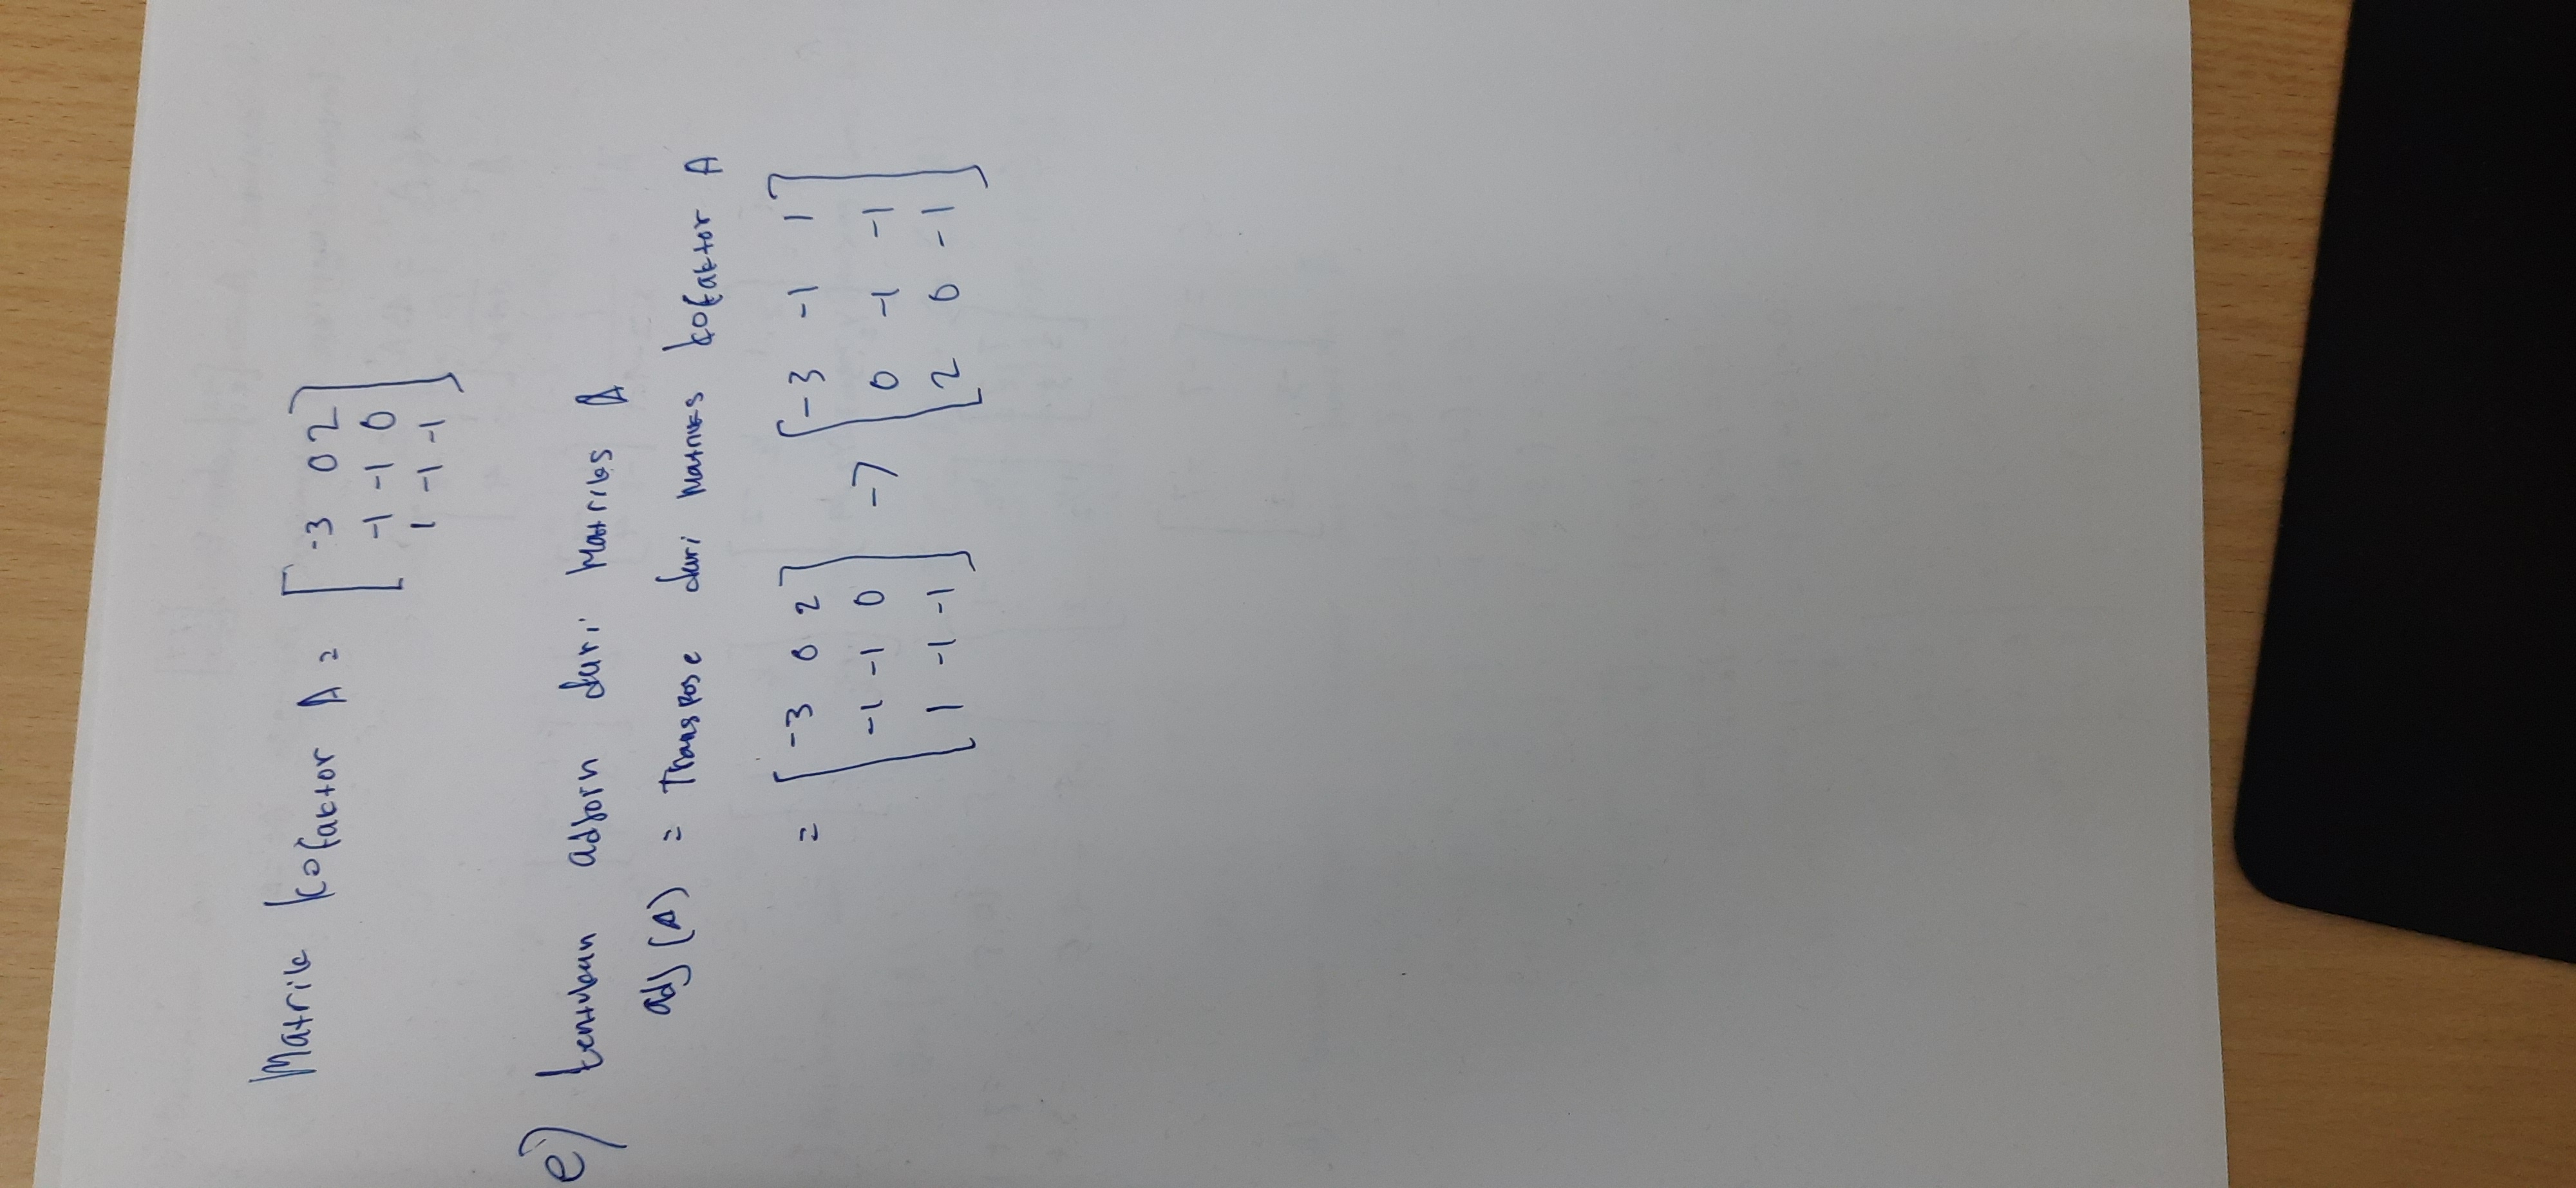 Matrik kofaktor A = [-3 0 2
-1 -1 0
1 -1 -1]
e) tentukan adjorn dari Matriks A
adj (A) = Transpose dari matriks kofaktor A
= [-3 0 2 -1 -1 0 1 -1 -1] -> [-3 -1 1 0 -1 -1 2 0 -1]